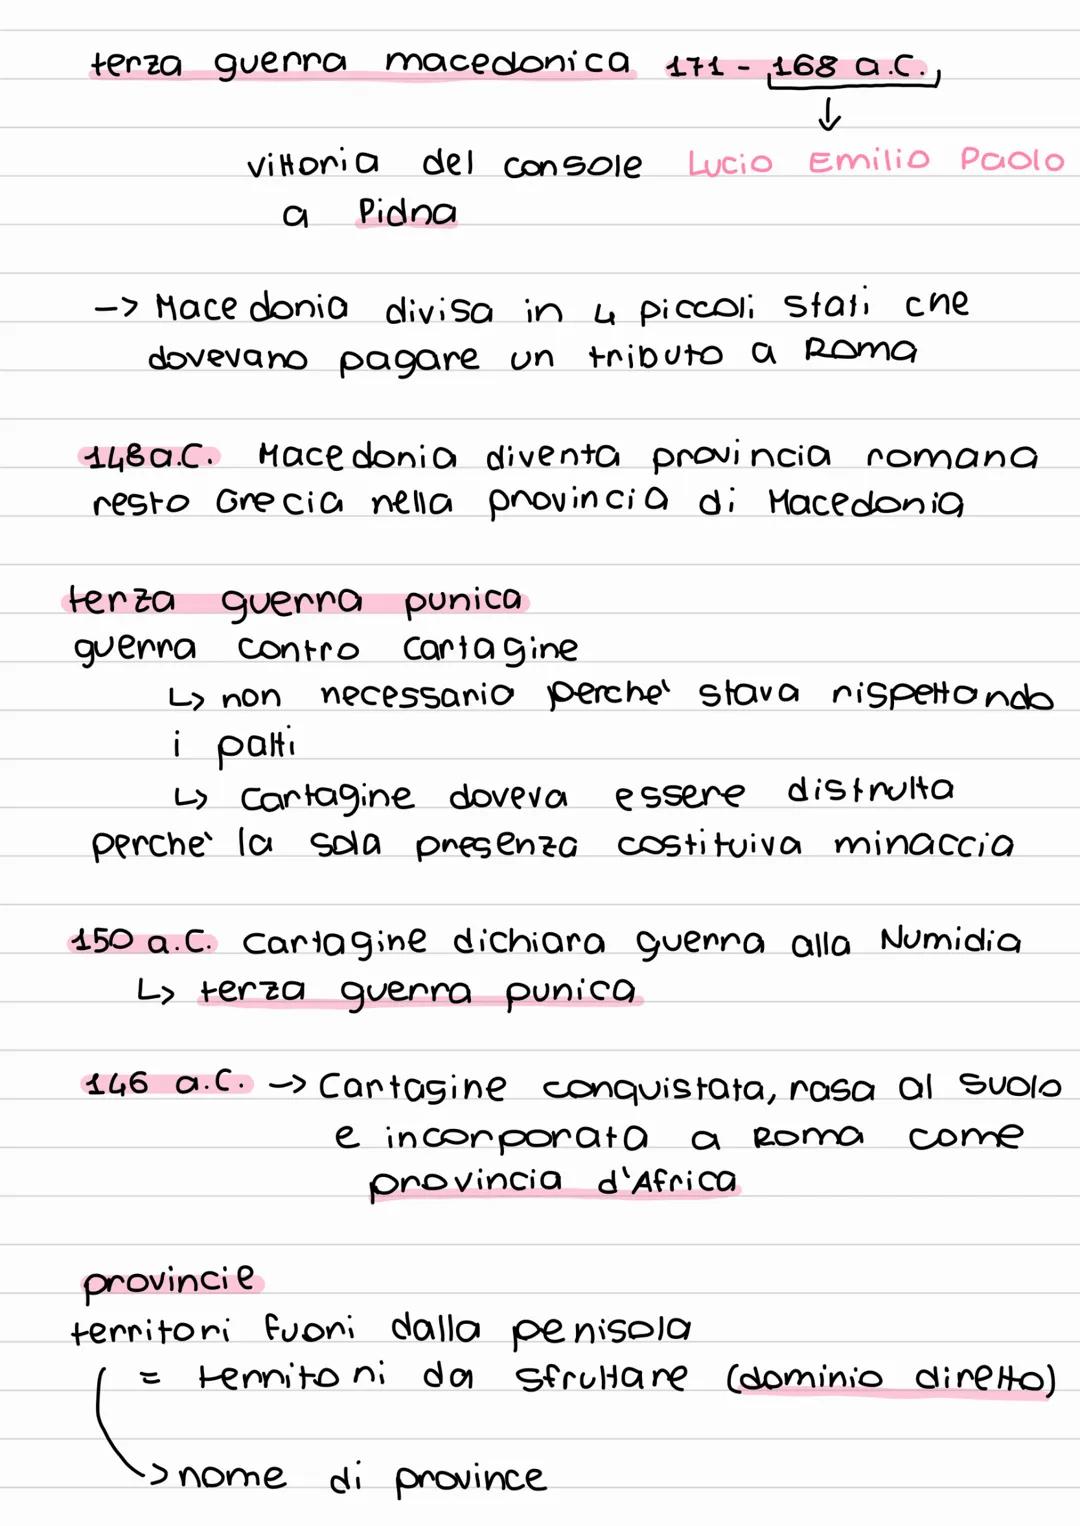 terza guerra macedonica 171 - 168 a.C.
↓
vittoria del console Lucio Emilio Paolo
a Pidna
-> Macedonia divisa in 4 piccoli stati che
dovevano pagare un tributo a Roma
148 a.C. Macedonia diventa provincia romana
resto Grecia nella provincia di Macedonia
terza guerra punica
guerra contro Cartagine
↳ non necessario perche' stava rispettando
i patti
↳ Cartagine doveva essere distrutta
perche' la sola presenza costituiva minaccia
150 a.C. Cartagine dichiara guerra alla Numidia
↳ terza guerra punica
146 a.C. -> Cartagine conquistata, rasa al suolo
e incorporata a Roma come
provincia d'Africa
provincie
territori fuori dalla penisola
= territori da sfruttare (dominio diretto)
-> nome di province